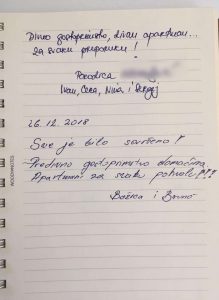 Divno gostoprimstvo, divan apartman...
za svaku preporuku !
Porodica
Ivan, Ceca, Nina i Sergej
26.12.2018
Sve je bilo savršeno !
Predivno gostoprimstvo domaćina,
Apartmani za svaku pohvalu!!!
Božica i Bruno